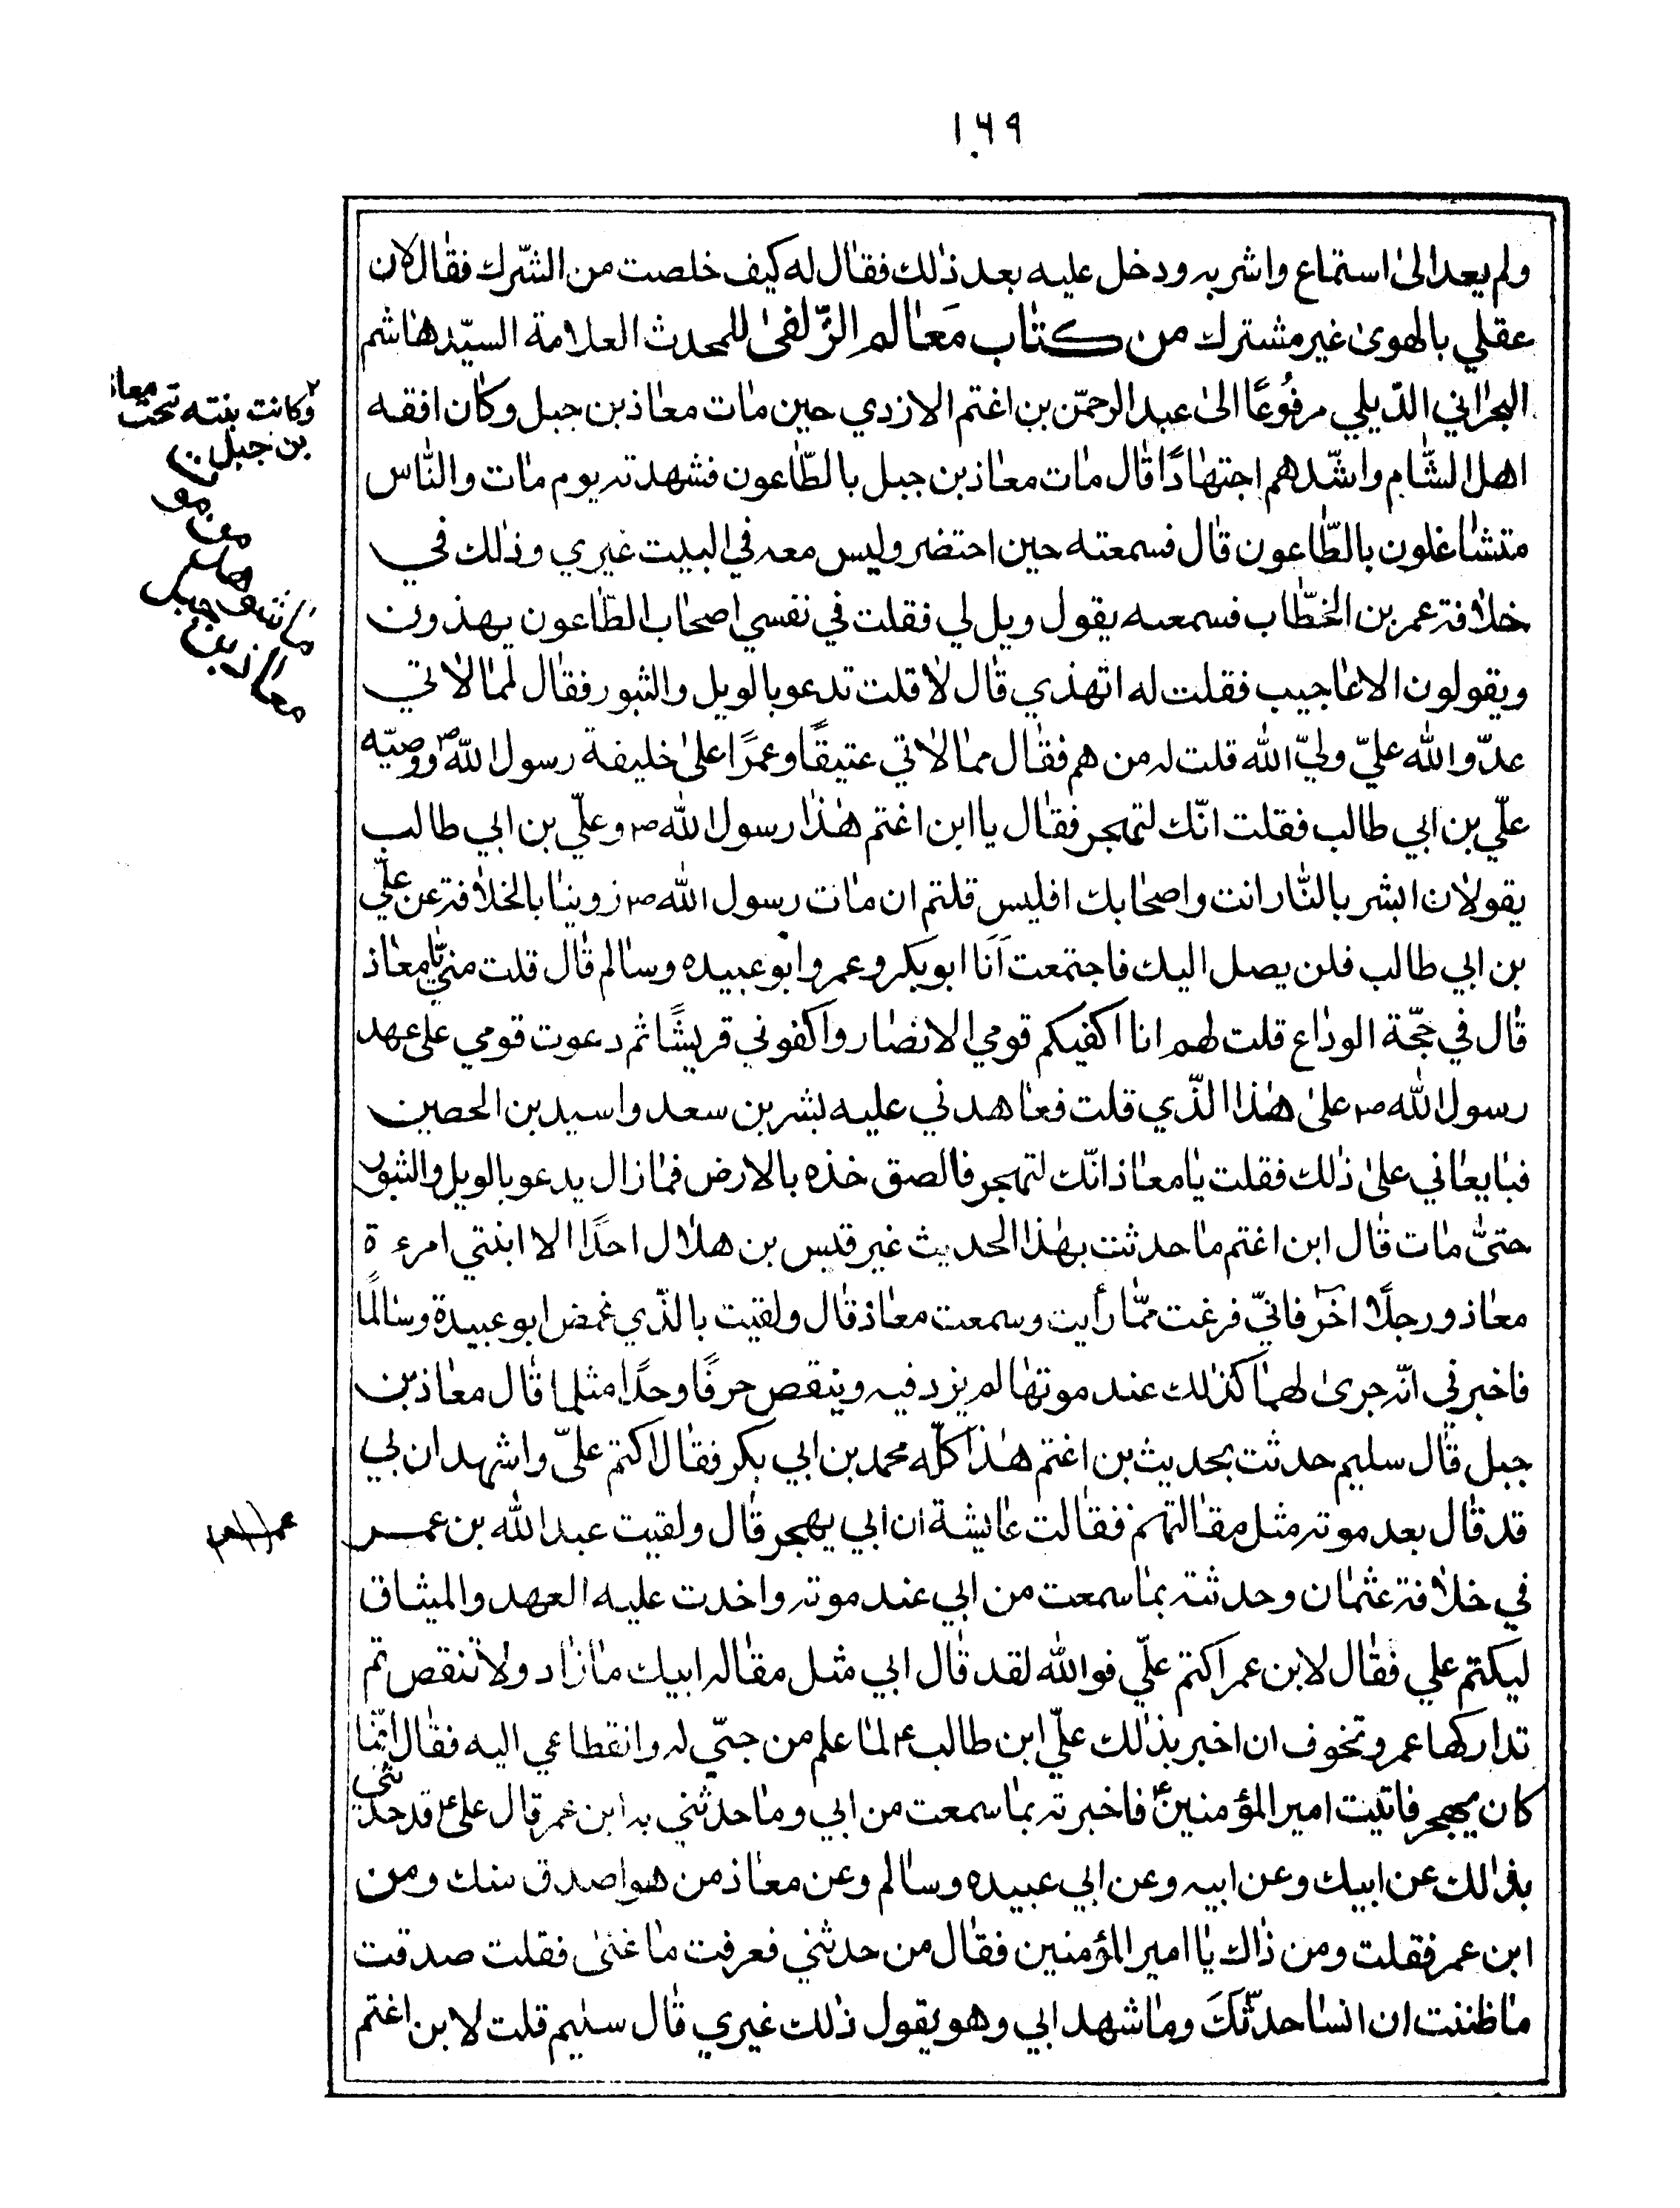 ١٦٩
ولم يعد الىٰ استماع واشربه ودخل عليه بعد ذٰلك فقٰال له كيف خلصت من الشّرك فقٰال لان
عقلي بالهوىٰ غير مشترك من كتٰاب مَعٰالم الزّلفىٰ للمحدث العلامة السيّد هٰاشم
البحرٰاني الدّيلي مرفُوعًا الىٰ عبد الرحمّن بن اغتم الازدي حين مٰات معٰاذ بن جبل وكٰان افقه
اهل الشّٰام واشّدهم اجتهٰادًا قٰال مٰات معٰاذ بن جبل بالطّٰاعون فشهدته يوم مٰات والنّٰاس
متشٰاغلون بالطّٰاعون قٰال فسمعته حين احتضر وليس معه في البيت غيري وذٰلك في
خلٰافة عمر بن الخطّٰاب فسمعته يقول ويل لي فقلت في نفسي اصحٰاب الطّٰاعون يهذون
ويقولون الاعٰاجيب فقلت له اتهذي قٰال لٰا قلت تدعو بالويل والثبور فقٰال لممٰالاتي
عدّو اللّٰه عليّ وليّ اللّٰه قلت له من هم فقٰال ممٰالاتي عتيقًا وعمرًا علىٰ خليفة رسول اللّٰه ص ووصيّه
علّي بن ابي طالب فقلت انّك لتهجر فقٰال يا ابن اغتم هٰذٰا رسول اللّٰه ص وعلّي بن ابي طالب
يقولٰان ابشر بالنّٰار انت واصحٰابك افليس قلتم ان مٰات رسول اللّٰه ص زوينٰا بالخلٰافة عن علّي
بن ابي طالب فلن يصل اليك فاجتمعت اَنَا ابوبكر وعمر وابو عبيده وسٰالم قٰال قلت متي يٰا معٰاذ
قٰال في حجّة الودٰاع قلت لهم انا اكفيكم قومي الانصٰار واكفوني قريشًا ثم دعوت قومي على عهد
رسول اللّٰه ص علىٰ هٰذٰا الّذي قلت فعٰاهدني عليه بشر بن سعد واسيد بن الحصين
فبٰايعٰاني علىٰ ذٰلك فقلت يٰا معٰاذ انّك لتهجر فالصق خذه بالارض فمٰا زال يدعو بالويل والثبور
حتىّٰ مٰات قٰال ابن اغتم مٰا حدثت بهٰذٰا الحديث غير قيس بن هلٰال احدًا الا ابنتي امرءة
معٰاذ ورجلًا اخر فانيّ فرغت ممّٰا رأيت وسمعت معٰاذ قٰال ولقيت بالذّي غمض ابو عبيدة وسٰالمًا
فاخبرني انّه جرىٰ لهمٰا كذٰلك عند موتهٰا لم يزد فيه وينقص حرفًا وحدًا مثلما قٰال معٰاذ بن
جبل قٰال سليم حدثت بحديث بن اغتم هٰذٰا كلّه محمد بن ابي بكر فقٰال اكتم عليّ واشهد ان ابي
قد قٰال بعد موته مثل مقٰالتهم فقٰالت عٰايشة ان أبي يهجر قٰال ولقيت عبد اللّٰه بن عمر
في خلٰافة عثمٰان وحدثته بمٰا سمعت من ابي عند موته واخدت عليه العهد والميثٰاق
ليكتم علي فقٰال لابن عمر اكتم علّي فواللّٰه لقد قٰال ابي مثل مقٰاله ابيك مٰا زٰاد ولٰا تنقص ثم
تداركها عمر وتخوف ان اخبر بذٰلك عليّ ابن طالب ع لمٰا علم من حبّي له وانقطاعي اليه فقٰال انّمٰا
كان يهجر فاتيت امير المؤمنين ع فاخبرته بمٰا سمعت من ابي ومٰا حدثني به ابن عمر قٰال علي ع قد حدثني
بذٰلك عن ابيك وعن ابيه وعن ابي عبيده وسٰالم وعن معٰاذ من هو اصدق منك ومن
ابن عمر فقلت ومن ذٰاك يٰا امير المؤمنين فقٰال من حدثني فعرفت مٰا عنىٰ فقلت صدقت
مٰا ظننت ان انسٰا حدّثكَ ومٰا شهد ابي وهو يقول ذٰلك غيري قٰال سليم قلت لابن اغتم
وكانت بنته تحت معاذ
بن جبل
معاذ بن جبل